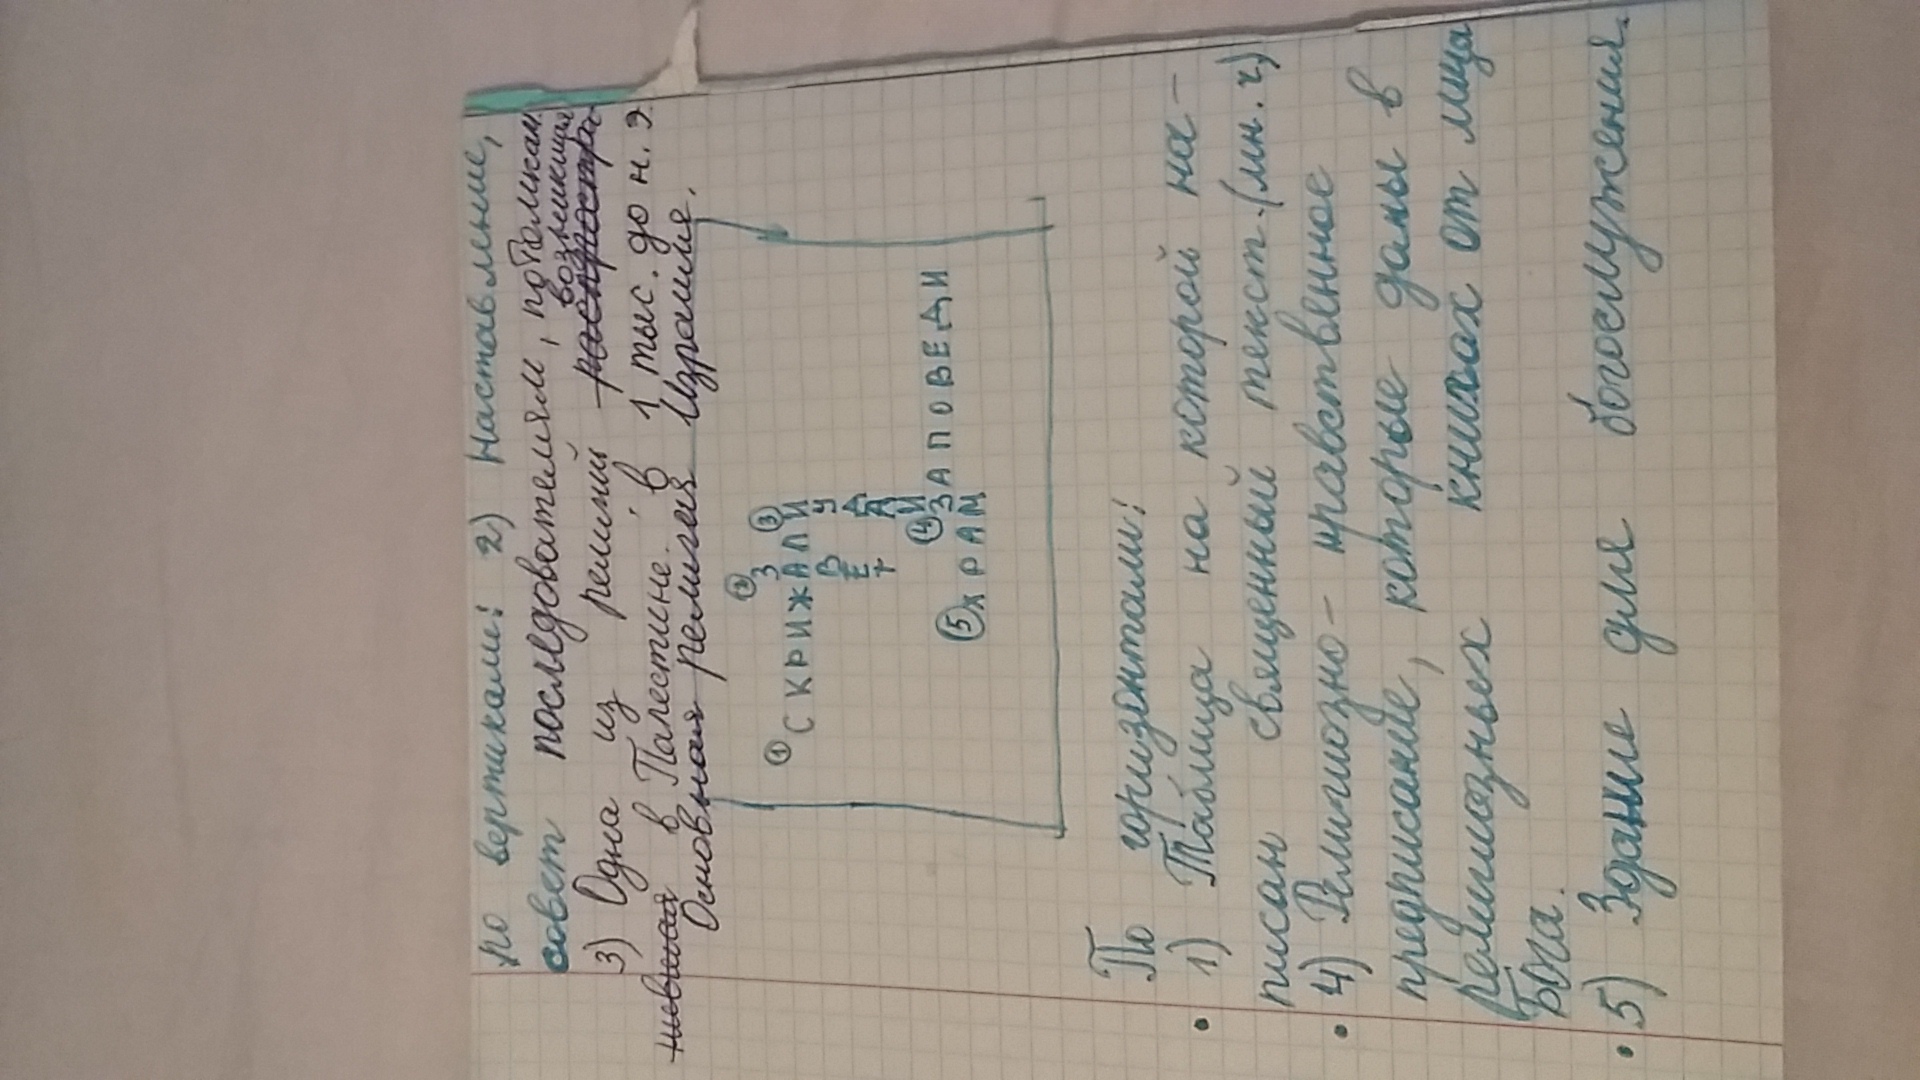 по вертикали: 2) Наставление,
совет последователям, потомкам.
3) Одна из религий распростра возникшая
нившая в Палестине, в 1 тыс. до н. э.
Основная религия в Израиле.
② ③
① СКРИЖАЛИ
З
В У
Е Д
Т А
④ И
ЗАПОВЕДИ
⑤ ХРАМ
По горизонтали:
• 1) Таблица на которой на-
писан священный текст. (мн. ч)
• 4) Религиозно-нравственное
предписание, которые даны в
религиозных книгах от лица
Бога.
• 5) Здание для богослужения.